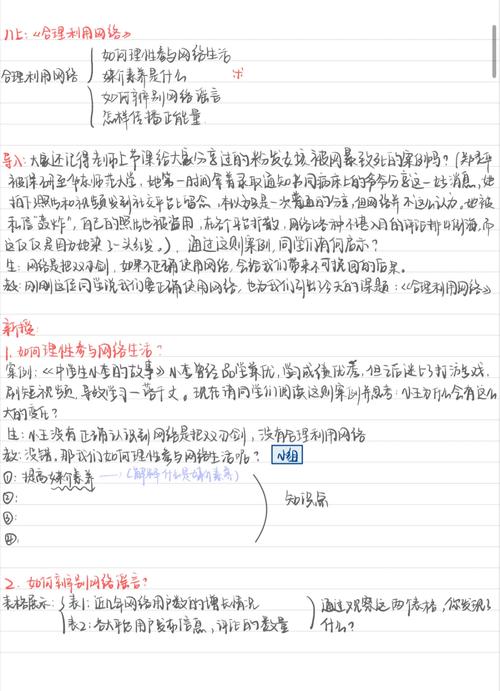 八上:《合理利用网络》
合理利用网络
如何理性参与网络生活
媒介素养是什么
如何辨别网络谣言
怎样传播正能量
导入:大家还记得老师上节课给大家分享过的粉发女孩被网暴致死的案例吗?(郑
被保研至华东师范大学,她第一时间拿着录取通知书同病床上的爷爷分享这一好消息,她
把照片和视频发到社交平台上留念,本以为是一次普通的分享,但网络并不这么认为,她被
私信"轰炸",自己的照片也被盗用,在各个平台扩散,网络各种不堪入目的评论排山倒海,而
这仅仅是因为她染了一头粉发。),通过这则案例,同学们有何启示?
生:网络是把双刃剑,如果不正确使用网络,会给我们带来不可挽回的后果。
教:刚刚这位同学说我们要正确使用网络,也为我们引出了今天的课题:《合理利用网络》
新授
1.如何理性参与网络生活?
案例:《中学生小李的故事》小李曾经品学兼优,学习成绩优秀,但之后迷上了打游戏,
刷短视频,导致学习一落千丈。现在请同学们阅读这则案例并思考:小王为什么会有这么
大的变化?
生:小王没有正确认识到网络是把双刃剑,没有合理利用网络
教:没错,那我们如何理性参与网络生活呢? 小组
①:提高媒介素养 (解释什么是媒介素养)
②:
③:
④:
知识点
2.如何辨别网络谣言?
表格展示:
表1:近几年网络用户数的增长情况
表2:各大平台用户发布信息,评论的数量
通过观察这两个表格,你发现了
什么?